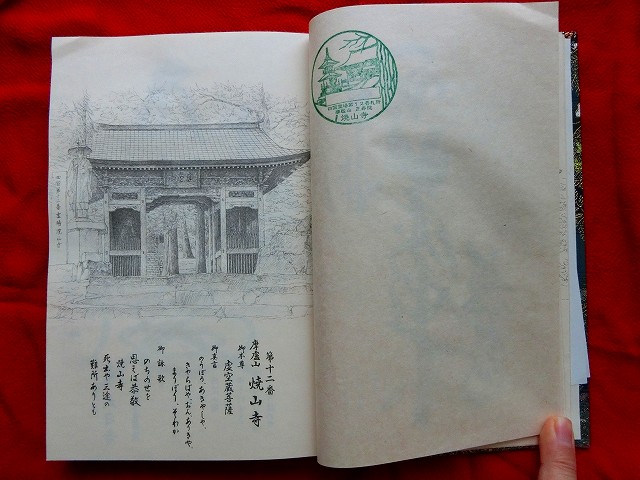 第十二番
摩盧山 焼山寺
御本尊
虚空蔵菩薩
御真言
のうぼう、あきやしゃ、
きやらばや、おん、ありきや、
まりぼり、そわか
御詠歌
のちのせを
思えば恭敬
焼山寺
死出や三途の
難所ありとも
四国霊場第12番札所
摩盧山 正寿院
焼山寺